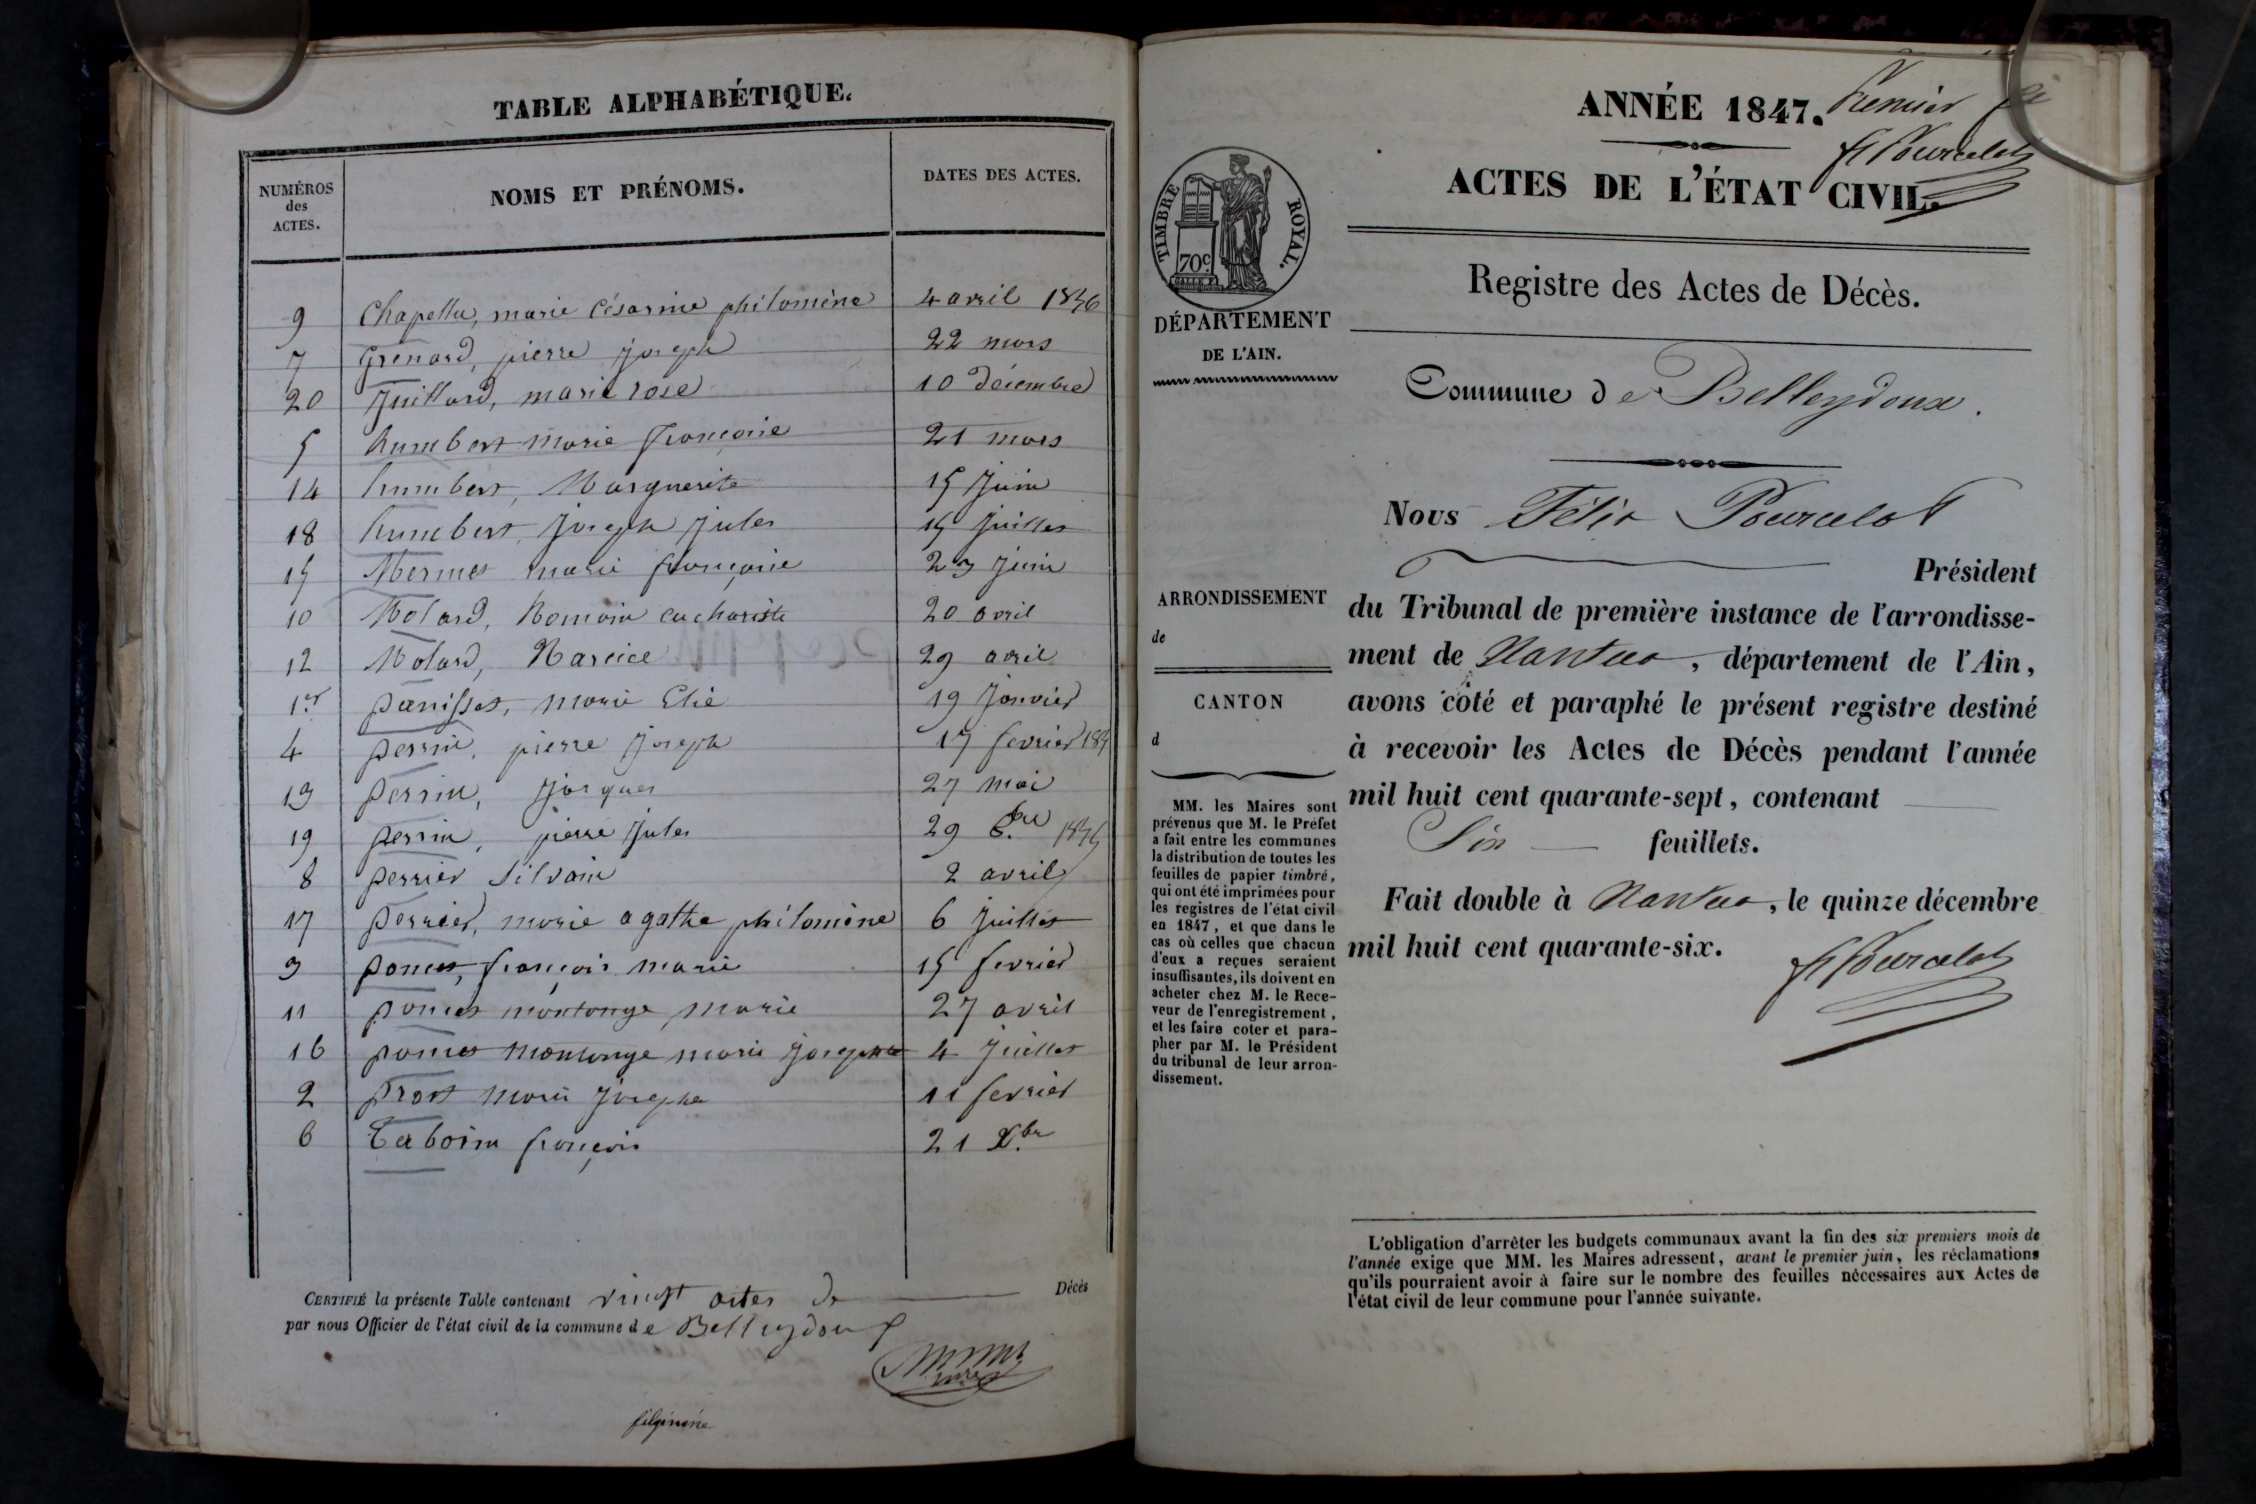 TABLE ALPHABÉTIQUE.
NUMÉROS
des
ACTES.
NOMS ET PRÉNOMS.
DATES DES ACTES.
9 Chapellu, marie Césarine philomène 4 avril 1846
7 Grenard, pierre joseph 22 mars
20 Juillard, marie rose 10 décembre
5 humbert marie françoise 21 mars
14 humbert, Marguerite 15 Juin
18 humbert, Joseph Jules 15 Juillet
15 Mermet marie françoise 23 Juin
10 Molard, Romain eucharéste 20 avril
12 Molard, Narcice 29 avril
1er panisset, marie Elie 19 Janvier
4 perrin, pierre Joseph 17 fevrier 184
13 perrin, Jacques 27 mai
19 perrin, pierre Jules 29 8.bre 1846
8 perrier Silvain 2 avril
17 perrier, marie agathe philomène 6 Juillet
3 poncet, françois marie 15 fevrier
11 poncet montange marie 27 avril
16 poncet montange marie josephte 4 Juillet
2 prost marie josephe 11 fevrier
6 Taboin françois 21 X.br
CERTIFIÉ la présente Table contenant vingt actes de Décès
par nous Officier de l'état civil de la commune de Belleydoux
ANNÉE 1847. Premier
F Pourcelot
ACTES DE L'ÉTAT CIVIL.
TIMBRE ROYAL.
70c.
DÉPARTEMENT
DE L'AIN.
Registre des Actes de Décès.
Commune de Belleydoux.
Nous Félix Pourcelot
Président
ARRONDISSEMENT
de
CANTON
d
du Tribunal de première instance de l'arrondisse-
ment de Nantua, département de l'Ain,
avons coté et paraphé le présent registre destiné
à recevoir les Actes de Décès pendant l'année
mil huit cent quarante-sept, contenant
Six feuillets.
Fait double à Nantua, le quinze décembre
mil huit cent quarante-six.
F Pourcelot
MM. les Maires sont
prévenus que M. le Préfet
a fait entre les communes
la distribution de toutes les
feuilles de papier timbré,
qui ont été imprimées pour
les registres de l'état civil
en 1847, et que dans le
cas où celles que chacun
d'eux a reçues seraient
insuffisantes, ils doivent en
acheter chez M. le Rece-
veur de l'enregistrement,
et les faire coter et para-
pher par M. le Président
du tribunal de leur arron-
dissement.
L'obligation d'arrêter les budgets communaux avant la fin des six premiers mois de
l'année exige que MM. les Maires adressent, avant le premier juin, les réclamations
qu'ils pourraient avoir à faire sur le nombre des feuilles nécessaires aux Actes de
l'état civil de leur commune pour l'année suivante.